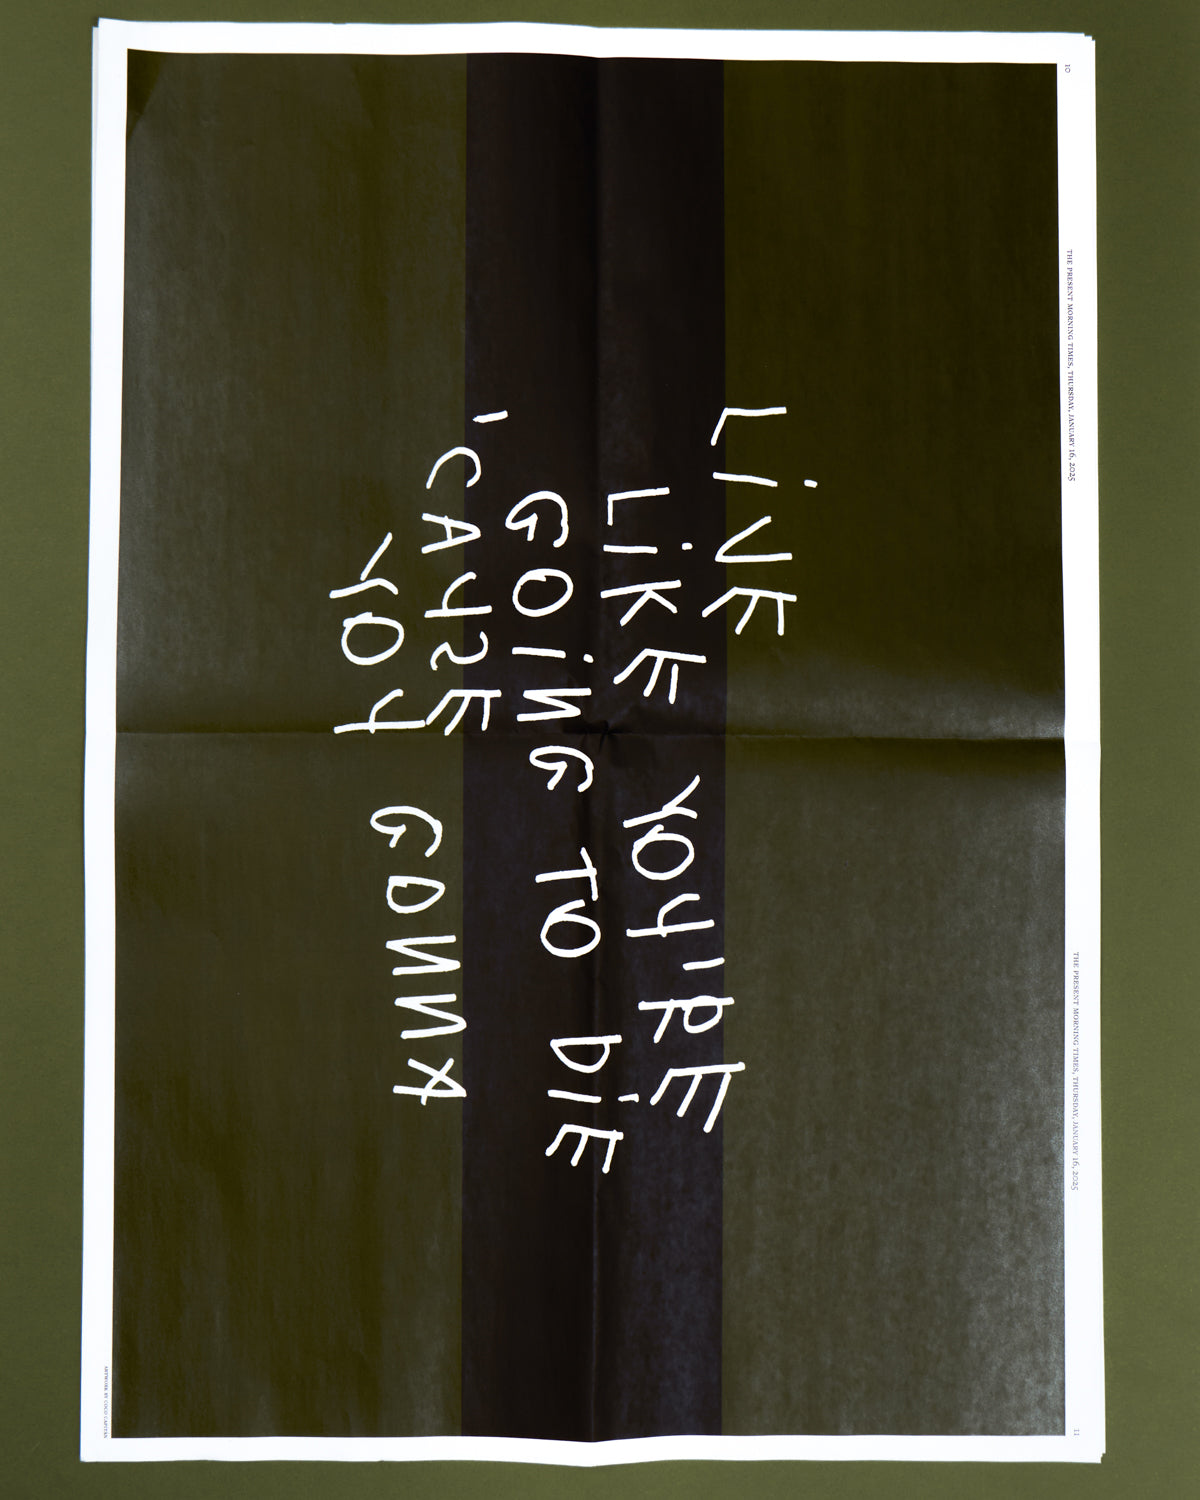 10
THE PRESENT MORNING TIMES, THURSDAY, JANUARY 16, 2025
THE PRESENT MORNING TIMES, THURSDAY, JANUARY 16, 2025
11
LiVE
LiKE YOU'RE
GOiNG TO DiE
'CAUSE
YOU GONNA
ARTWORK BY COCO CAPITÁN